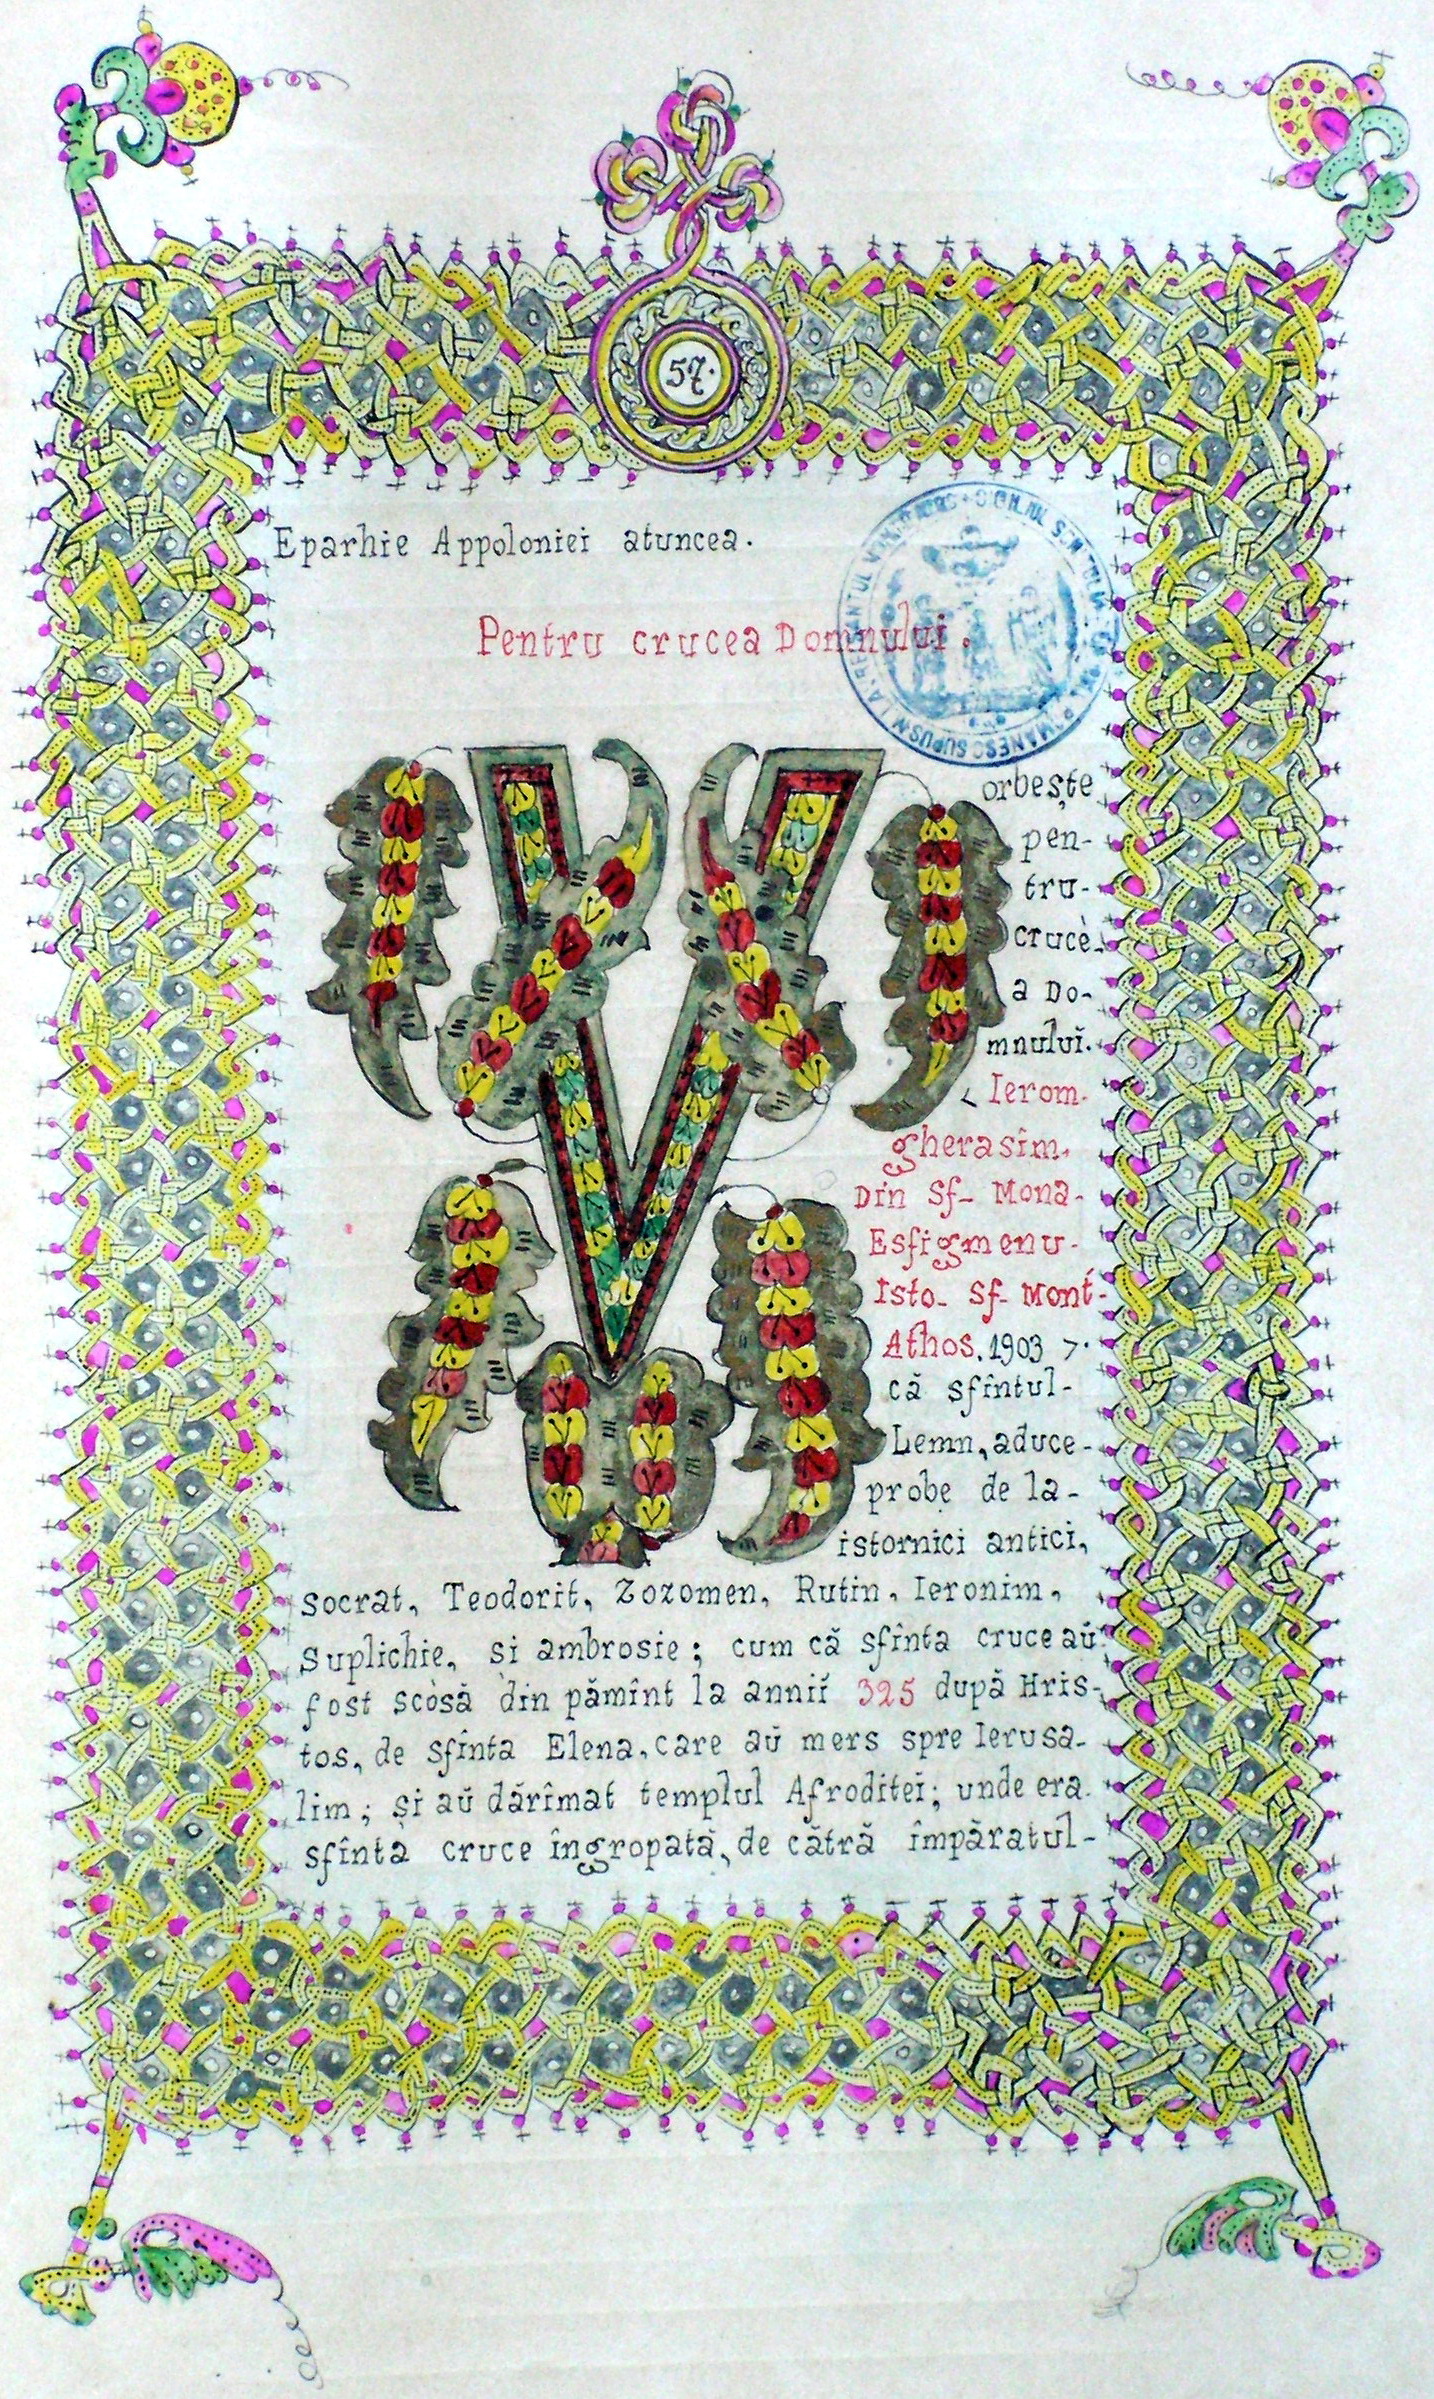 57.
Eparhie Appoloniei atuncea.
Pentru crucea Domnului.
V
orbește
pen-
tru-
crucè-
a Do-
mnuluĭ.
< Ierom.
gherasim.
Din Sf- Mona-
Esfigmenu-
Isto- Sf- Mont-
Athos. 1903 >.
că sfîntul-
Lemn, aduce-
probe de la-
istornici antici,
Socrat, Teodorit, Zozomen, Rutin, Ieronim,
Suplichie, si ambrosie; cum că sfînta cruce aŭ
fost scòsă din pămînt la anniĭ 325 după Hris-
tos, de sfînta Elena, care aŭ mers spre Ierusa-
lim; și aŭ dărîmat templul Afroditeĭ; unde era
sfîntă cruce îngropată, de cătră împăratul-